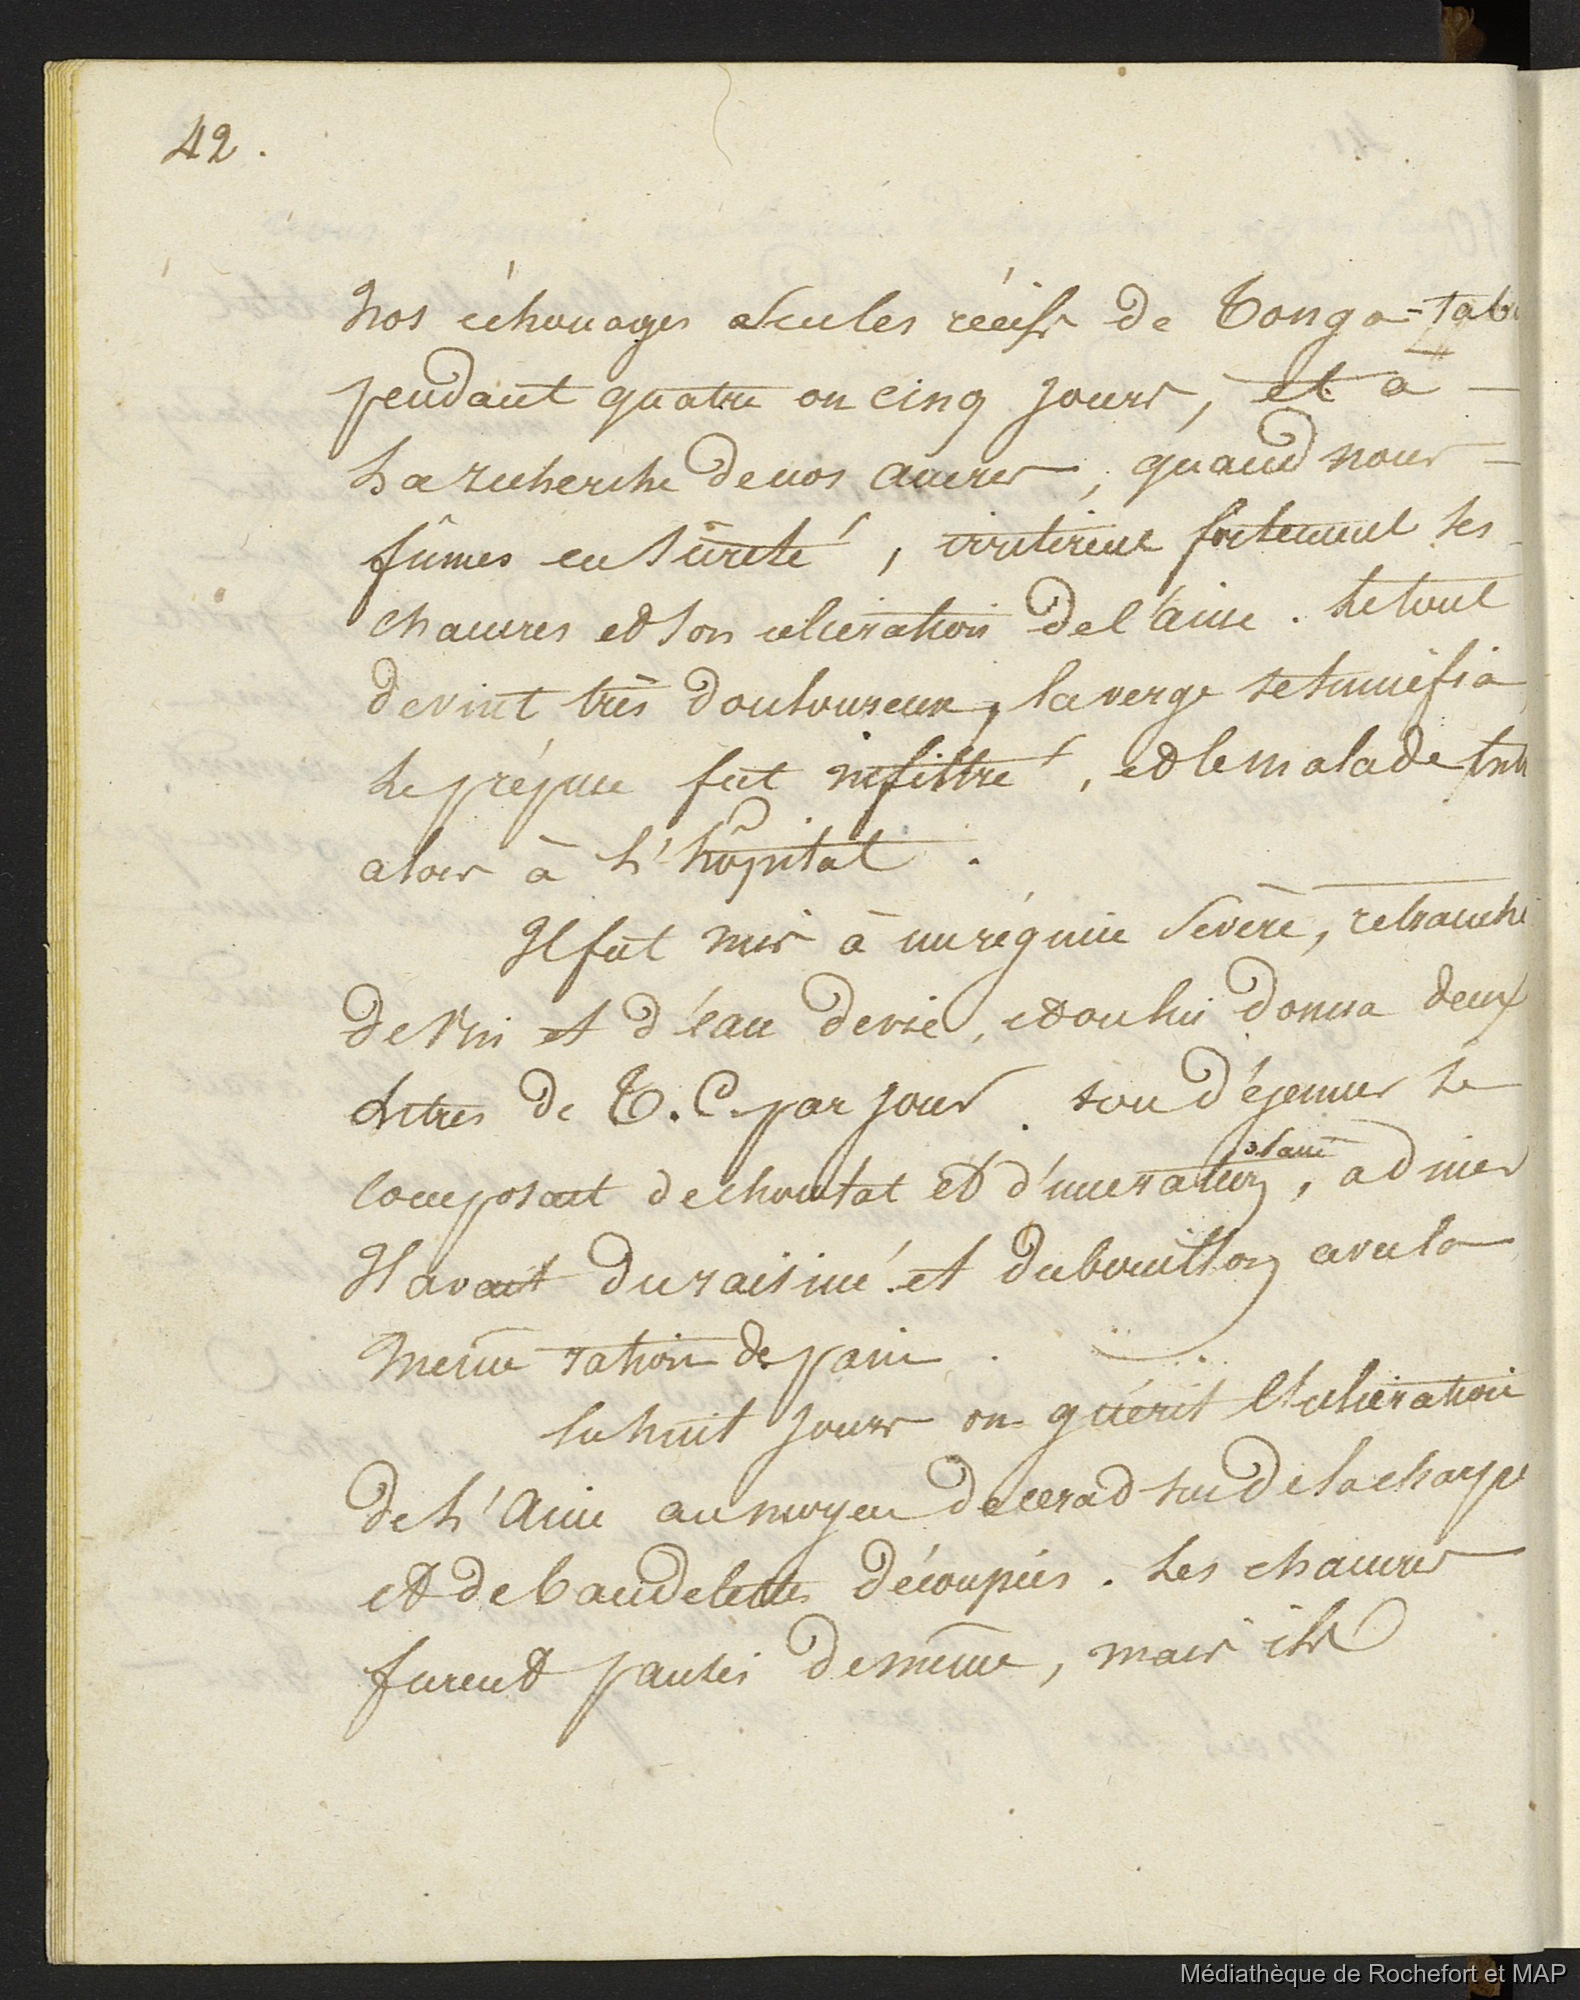 42.
nos échouages sur les récifs de Tonga-tabou
pendant quatre ou cinq jours, et à
la recherche de nos ancres, quand nous
fûmes en sûreté, irritèrent fortement ses
chancres et son ulcération de l'aine. le tout
devint très douloureux, la verge se tuméfia
le prépuce fut infiltré, et le malade
alors à l'hôpital.
Il fut mis à un régime sévère, retranché
de vin et d'eau de vie, et on lui donna deux
litres de T. C. par jour. son déjeuner se
composait de chocolat et d'une ration, a diner
Il avait du raisiné et du bouillon avec la
même ration de pain.
En huit jours on guérit l'ulcération
de l'aine au moyen de cerad sur de la charpie
et de bandelettes découpées. Les chancres
furent pansés de même, mais ils
Médiathèque de Rochefort et MAP